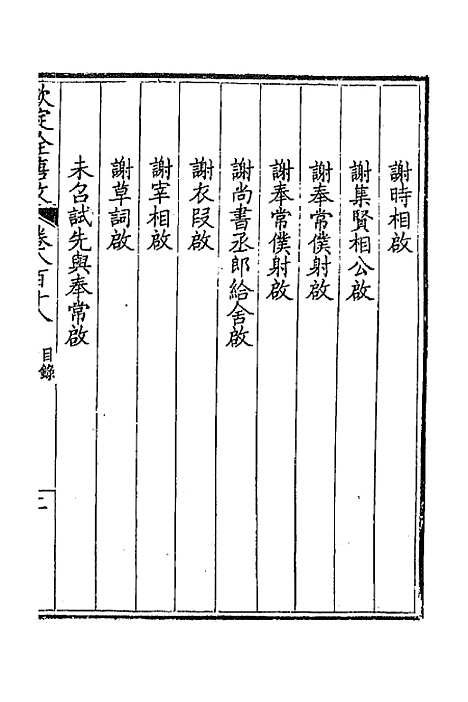 謝時相啟
謝集賢相公啟
謝奉常僕射啟
謝奉常僕射啟
謝尚書丞郎給舍啟
謝衣段啟
謝宰相啟
謝草詞啟
未召試先與奉常啟
欽定全唐文 卷八百十八 目錄 二